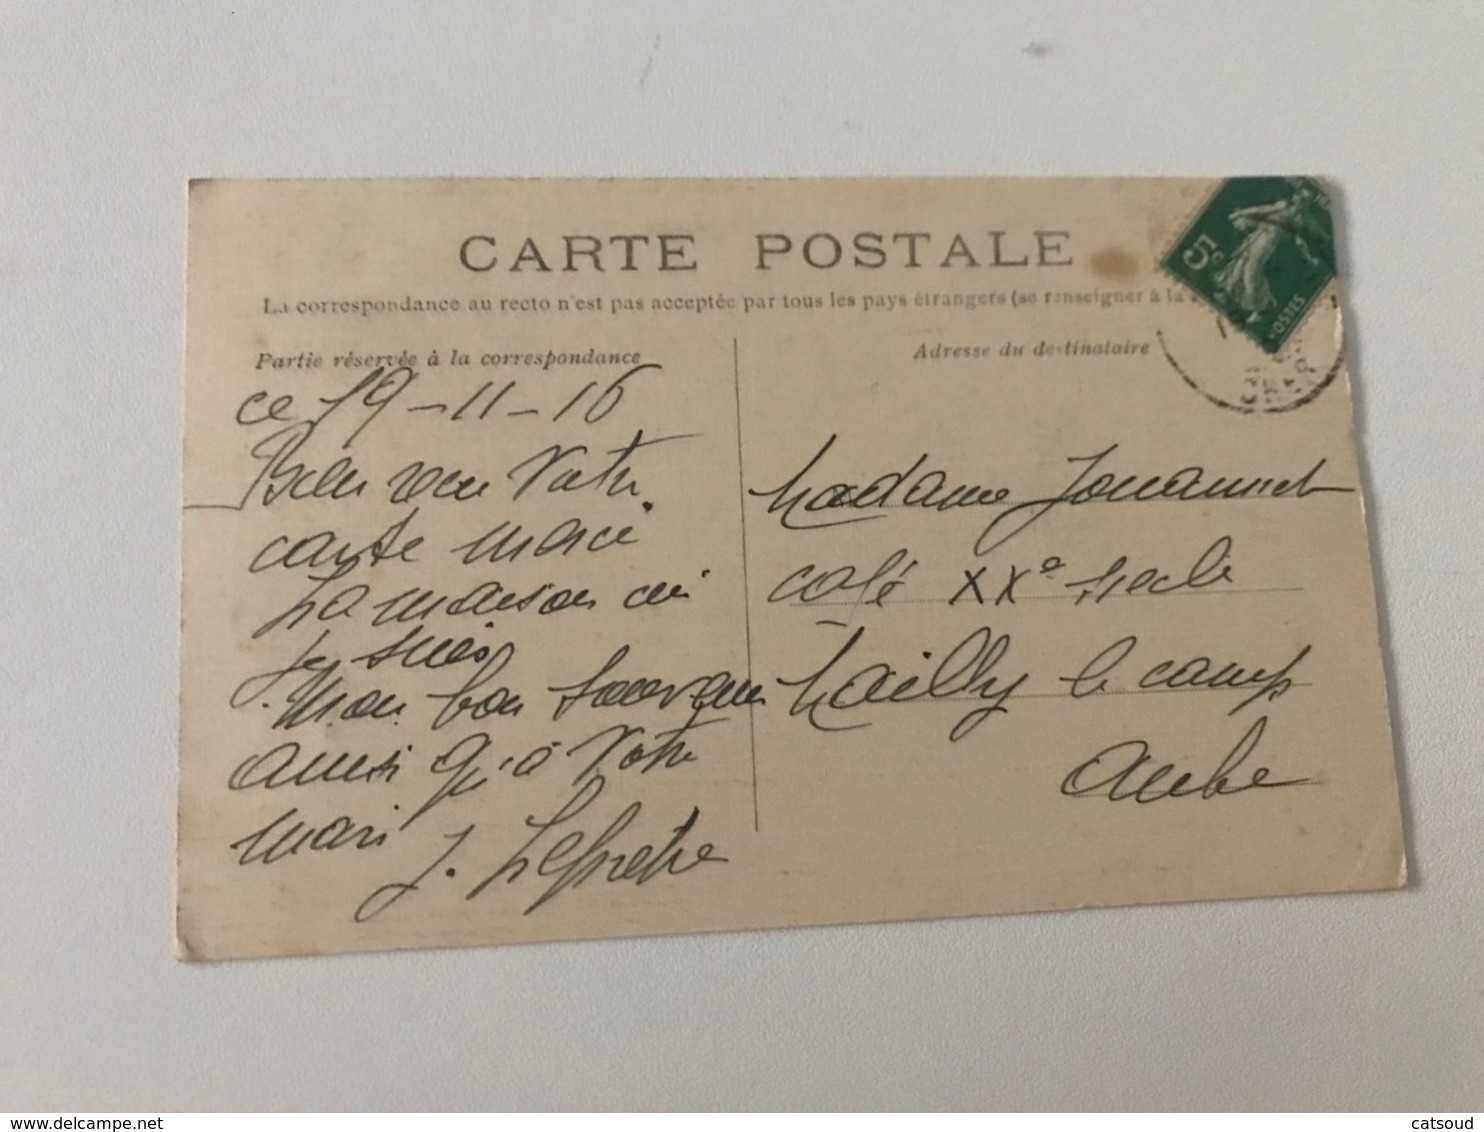 CARTE POSTALE
La correspondance au recto n'est pas acceptée par tous les pays étrangers (se renseigner à la
Partie réservée à la correspondance
Adresse du destinataire
5c
POSTES
ce 19-11-16
Bien recu Votre
carte merci
La maison ou
je suis
mon bon Souvenir
ainsi qu'à Votre
mari J.
Madame Jouannet
café XXe siecle
Mailly le camp
Aube
delcampe.net
catsoud